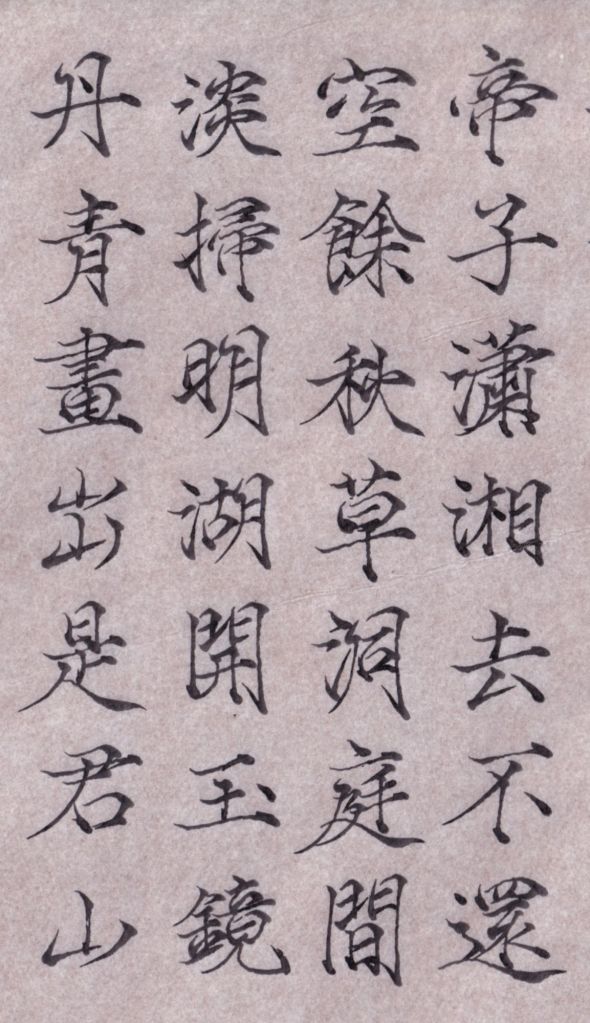 帝子瀟湘去不還
空餘秋草洞庭間
淡掃明湖開玉鏡
丹青畫出是君山